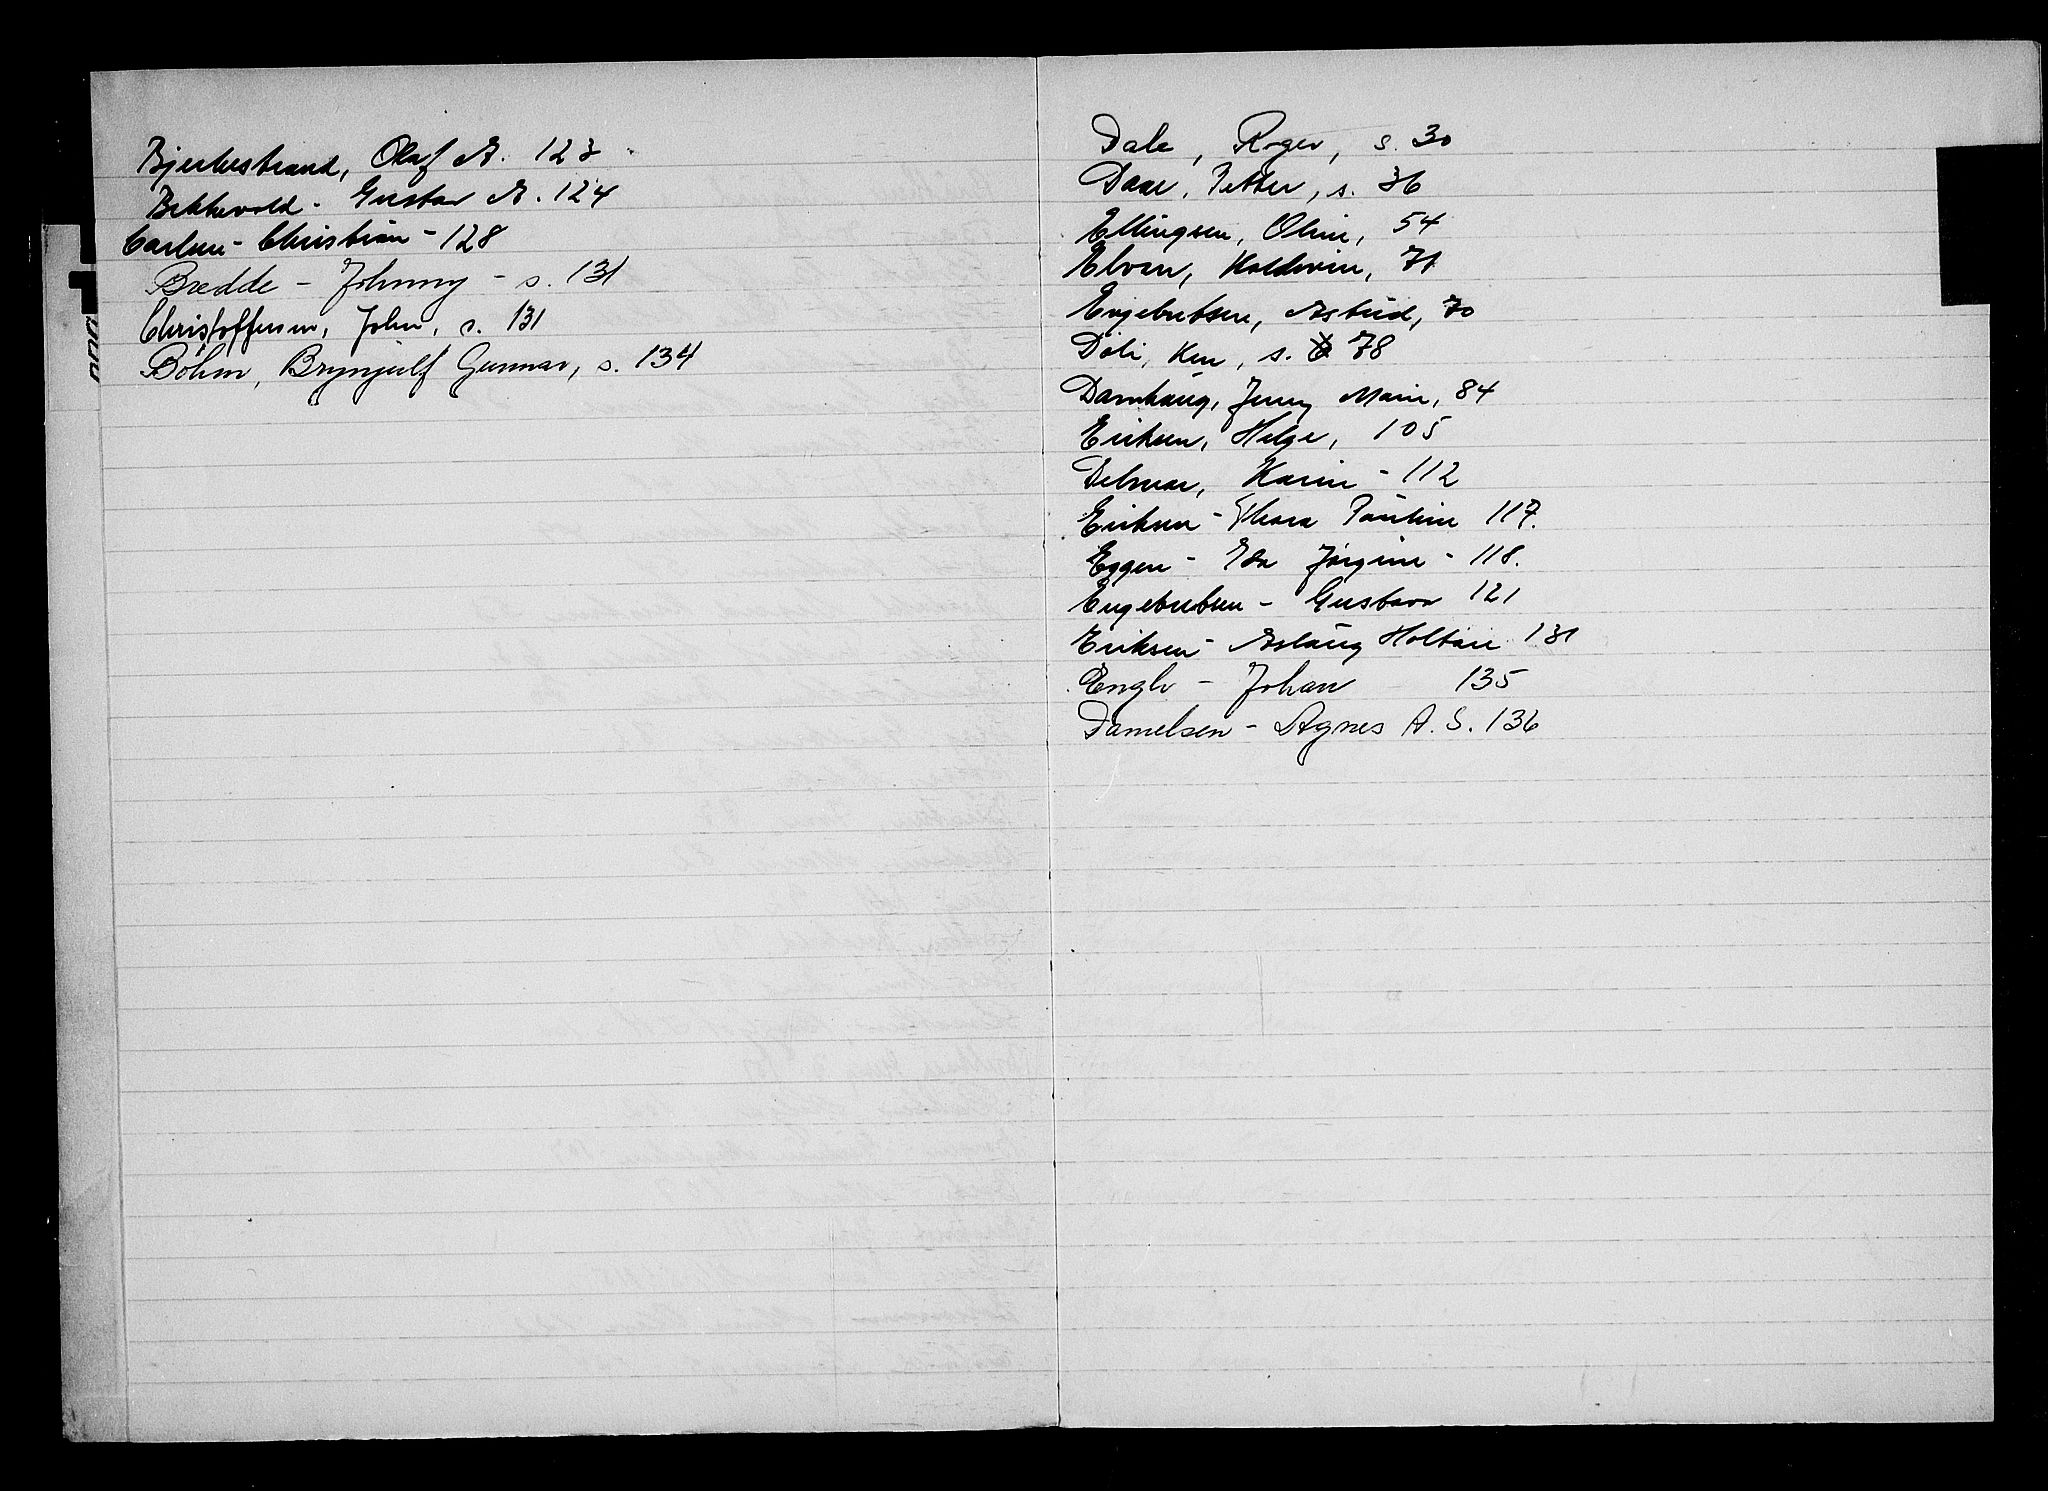 Bjerkestrand, Olaf A. 123
Bekkevold - Gustav A. 124
Carlsen - Christian - 128
Bredde - Johnny - s. 131
Christoffersen, John, s. 131
Böhm, Brynjulf Gunnar, s. 134
Dale, Roger, s. 30
Daae, Petter, s. 36
Ellingsen, Oline, 54
Elven, Haldvin, 71
Engebretsen, Astrid, 70
Doli, Ken, s. 78
Damhaug, Jenny Marie, 84
Eriksen, Helge, 105
Delmar, Karin - 112
Eriksen - Thora Pauline 117.
Eggen - Ida Jørgine - 118.
Engebretsen - Gustava 121
Eriksen - Aslaug Holtan 131
Engh - Johan 135
Danielsen - Agnes A. S. 136